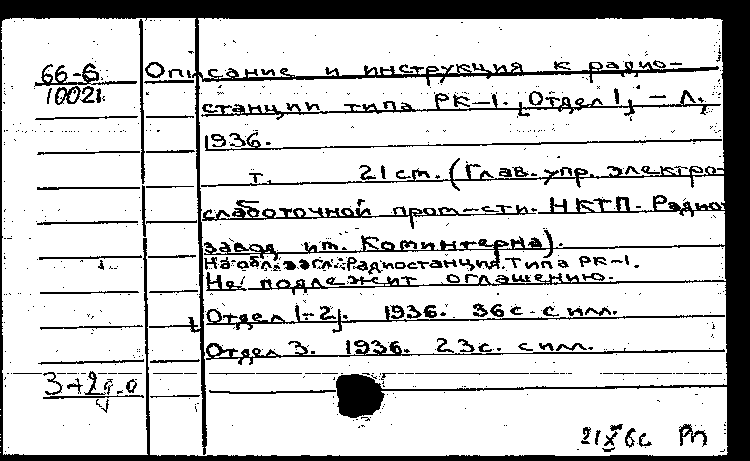 66-6 Описание и инструкция к радио-
10021 станции типа РК-1. [Отдел 1] - Л,
1936.
т. 21 см. (Глав. упр. электро-
слаботочной пром-сти. НКТП. Радио
завод им. Коминтерна).
На обл. загл.: Радиостанция. Типа РК-1.
Не подлежит оглашению.
[Отдел 1-2]. 1936. 36 с. с илл.
Отдел 3. 1936. 23 с. с илл.
3+2д.о
21 X 6